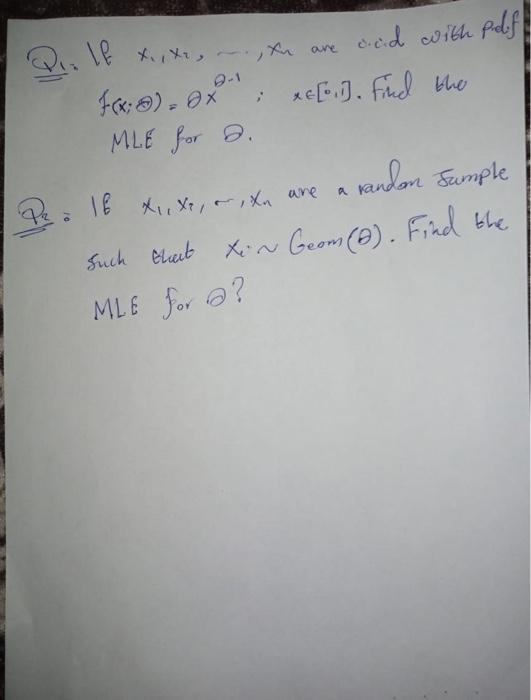 Q1: If x₁, x₂, ----, xn are i.i.d with pdf
f(x; θ) = θx^θ-1 ; x∈[0,1]. Find the
MLE for θ.
Q2: If x₁, x₂, ~, xn are a random sample
such that xi ~ Geom(θ). Find the
MLE for θ?